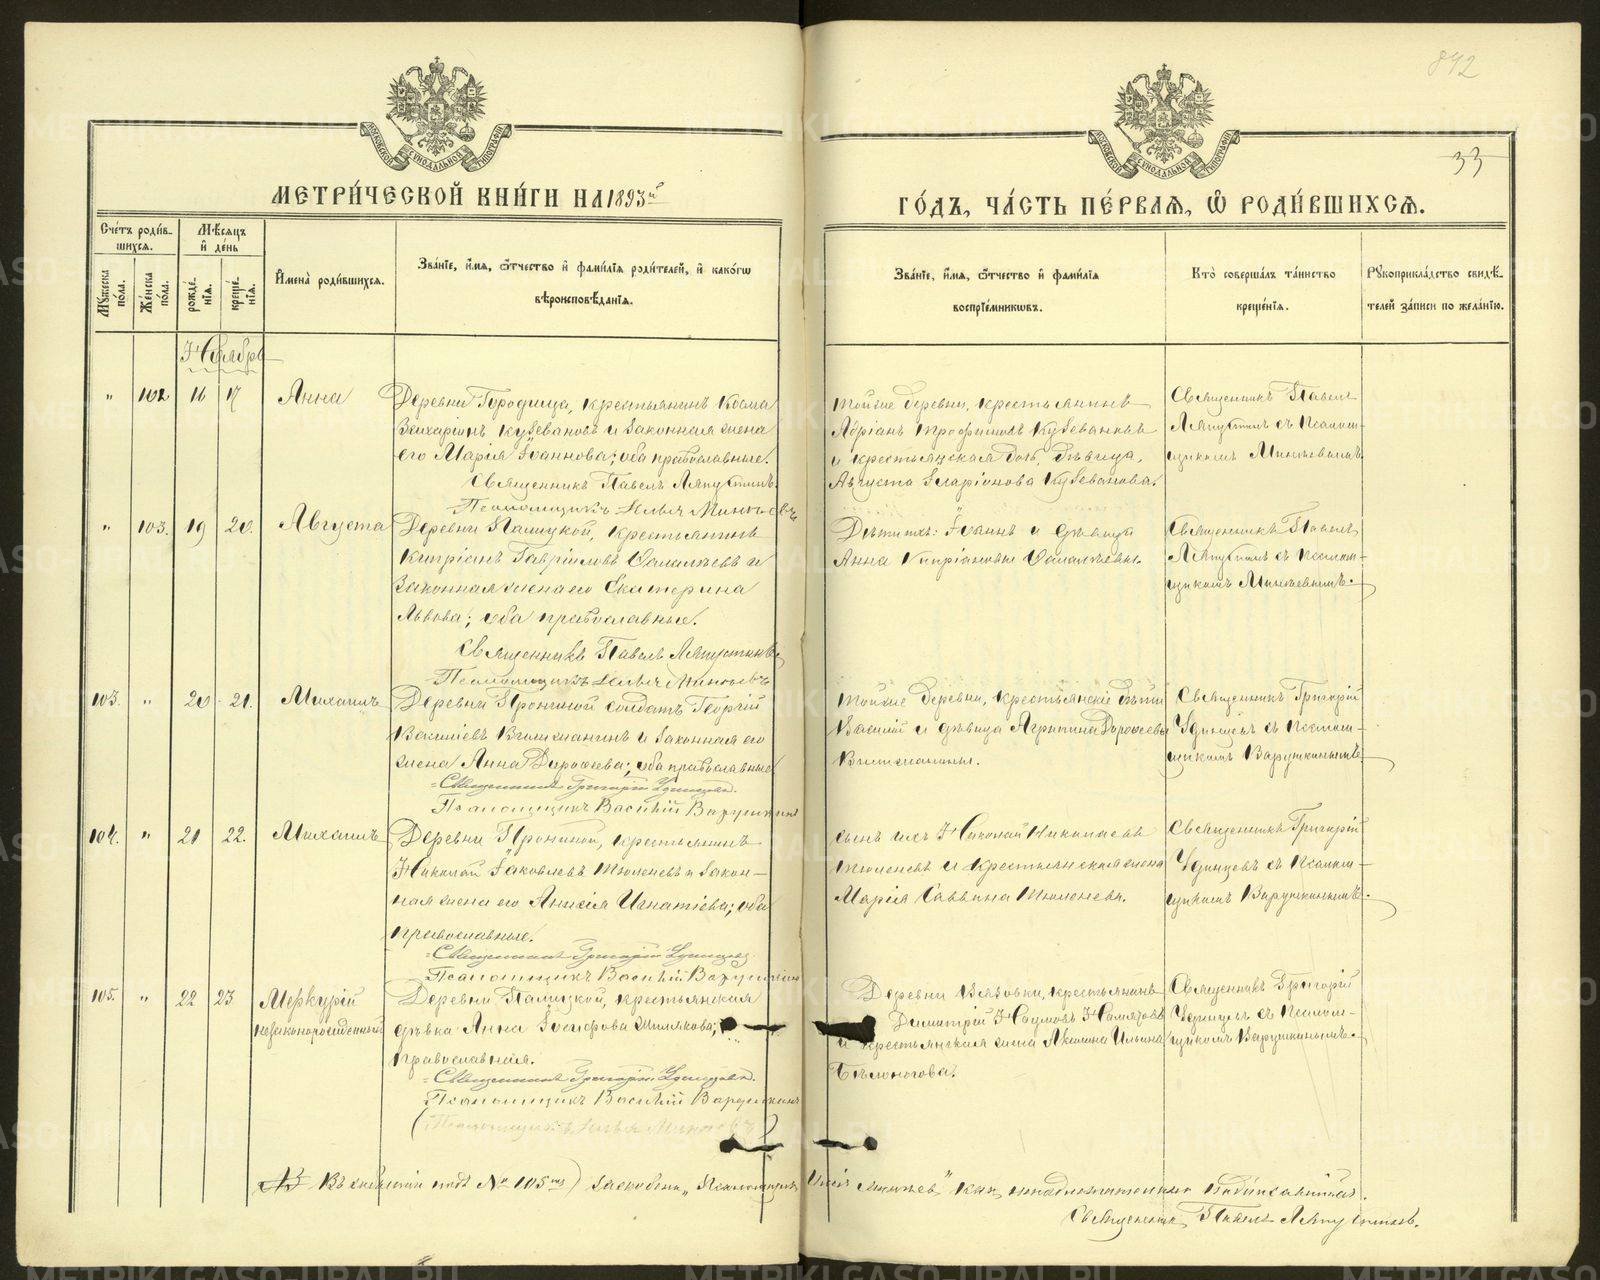 842
33
МОСКОВСКОЙ СѴНОДАЛЬНОЙ ТИПОГРАФІИ
МОСКОВСКОЙ СѴНОДАЛЬНОЙ ТИПОГРАФІИ
МЕТРИ́ЧЕСКОЙ КНИ́ГИ НА 1893й
ГО́ДЪ, ЧА́СТЬ ПЕ́РВАѦ, Ѡ҆ РОДИ́ВШИХСѦ.
Сче́тъ роди́в-
шихсѧ.
Мꙋжеска по́ла.
Же́нска по́ла.
Мѣ́сѧцъ
и҆ де́нь
рожде́-
нїѧ.
креще́-
нїѧ.
И҆мена̀ роди́вшихсѧ.
Зва́нїе, и҆́мѧ, ѻ҆́тчество и҆ фами́лїѧ роди́телей, и҆ како́гѡ
вѣроисповѣ́данїѧ.
Зва́нїе, и҆́мѧ, ѻ҆́тчество и҆ фами́лїѧ
воспрїе́мникѡвъ.
Кто̀ соверша́лъ та́инство
креще́нїѧ.
Рꙋкоприкла́дство свидѣ́-
телей за́писи по жела́нїю.
Ноябрь
" 102 16 17 Анна
Деревни Городища, крестьянинъ Косма
Захаріинъ Кузевановъ и законная жена
его Марія Іоаннова; оба православные.
Священникъ Павелъ Ляпустинъ.
Псаломщикъ Илья Минѣевъ
тойже деревни, крестьянинъ
Адріанъ Трофимовъ Кузевановъ
и крестьянская дочь, дѣвица,
Августа Иларіонова Кузеванова.
Священникъ Павелъ
Ляпустинъ съ псалом-
щикомъ Минѣевымъ
" 103. 19 20. Августа
Деревни Палицкой, крестьянинъ
Кипріанъ Гавріиловъ
законная жена его Екатерина
Львова; оба православные.
Священникъ Павелъ Ляпустинъ
Псаломщикъ Илья Минѣевъ
Дѣти ихъ: Іоаннъ и дѣвица
Анна Кипріановы
Священникъ Павелъ
Ляпустинъ съ псалом-
щикомъ Минѣевымъ.
103. " 20 21. Михаилъ
Деревни Прониной солдатъ Георгій
и законная его
жена Анна Дороѳеева; оба православные
Священникъ Григорій Удинцевъ.
Псаломщикъ Василій Варушкинъ
тойже деревни, крестьянскіе дѣти
Василій и дѣвица Агрипина Дороѳеевы
Священникъ Григорій
Удинцевъ съ псалом-
щикомъ Варушкинымъ
104. " 21 22. Михаилъ
Деревни Прониной, крестьянинъ
Николай Іаковлевъ Тюленевъ и закон-
ная жена его Анисія Игнатіева; оба
православные.
Священникъ Григорій Удинцевъ
Псаломщикъ Василій Варушкинъ
сынъ ихъ Николай Николаевъ
Тюленевъ и крестьянская жена
Марія Саввина Тюленева.
Священникъ Григорій
Удинцевъ съ псалом-
щикомъ Варушкинымъ.
105. " 22 23 Меркурій
незаконорожденный
Деревни Палицкой, крестьянская
дѣвка Анна Іосифова Шилякова;
православная.
Священникъ Григорій Удинцевъ.
Псаломщикъ Василій Варушкинъ
(Псаломщикъ Илья Минѣевъ)
Деревни Вязовки, крестьянинъ
Димитрій Наумовъ
и крестьянская жена Акилина Ильина
Бѣлоногова.
Священникъ Григорій
Удинцевъ съ псалом-
щикомъ Варушкинымъ.
NB Въ подъ № 105мъ) заскоблено „Псаломщикъ Илья Минѣевъ" какъ
Священникъ Павелъ Ляпустинъ.
METRIKI.GASO-URAL.RU